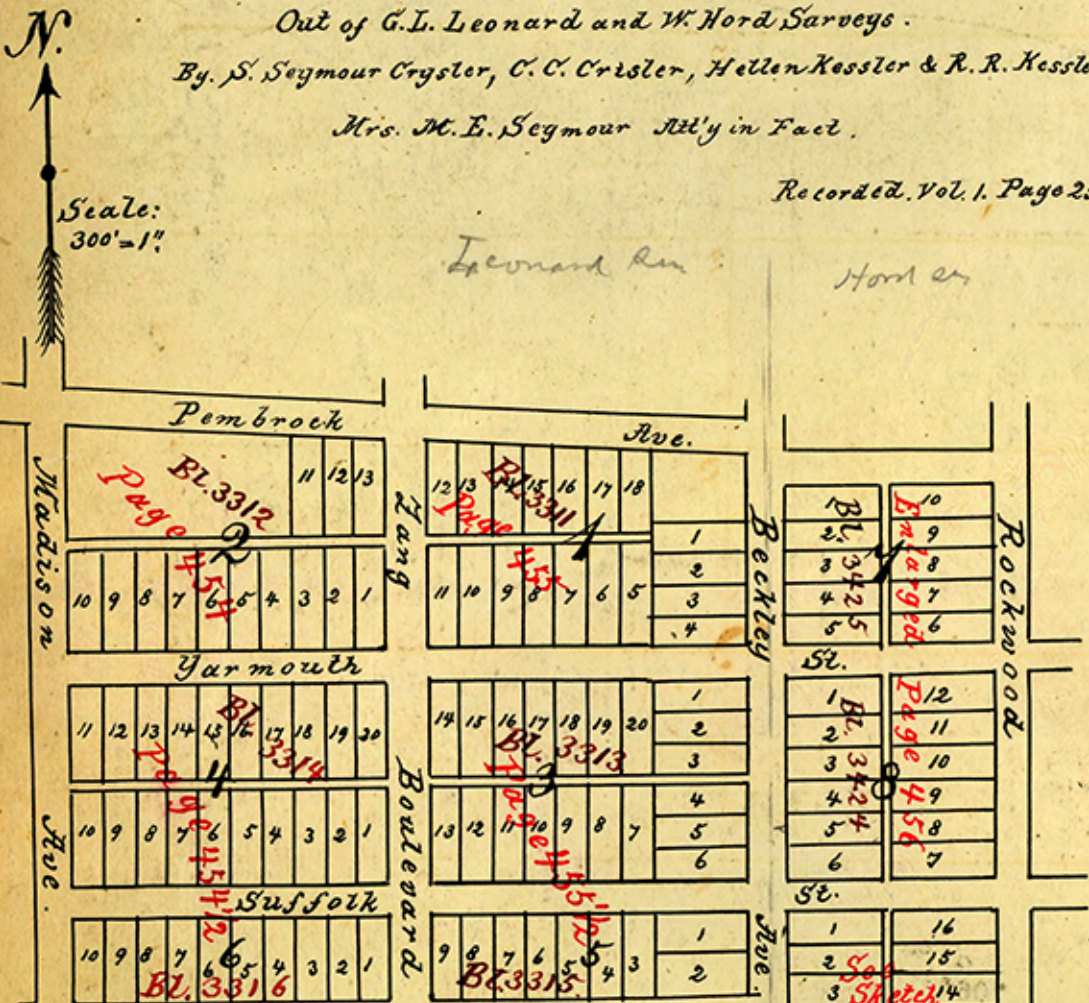 N.
Out of G.L. Leonard and W. Hord Sarveys.
By. S. Seymour Crysler, C.C. Crisler, Hellen Kessler & R.R. Kessle
Mrs. M.E. Seymour Att'y in Fact.
Recorded. Vol. 1. Page 2
Scale:
300'=1".
Leonard Sur
Hord sur
Pembrock
Ave.
Madison
Ave.
Zang
Boulevard
Beckley
Ave.
Rockwood
Bl. 3312
Page 454
2
11 12 13
10 9 8 7 6 5 4 3 2 1
Bl. 3311
Page 455
1
12 13 14 15 16 17 18
11 10 9 8 7 6 5
1
2
3
4
Bl. 3425
Enlarged
1
2
3
4
5
10
9
8
7
6
Yarmouth
St.
Bl. 3314
Page 454½
4
11 12 13 14 15 16 17 18 19 20
10 9 8 7 6 5 4 3 2 1
Bl. 3313
Page 455½
3
14 15 16 17 18 19 20
13 12 11 10 9 8 7
1
2
3
4
5
6
Bl. 3424
Page 456
8
1
2
3
4
5
6
12
11
10
9
8
7
Suffolk
St.
10 9 8 7 6 5 4 3 2 1
6
Bl. 3316
9 8 7 6 5 4 3
5
Bl. 3315
1
2
1
2
3
16
15
14
Sketch